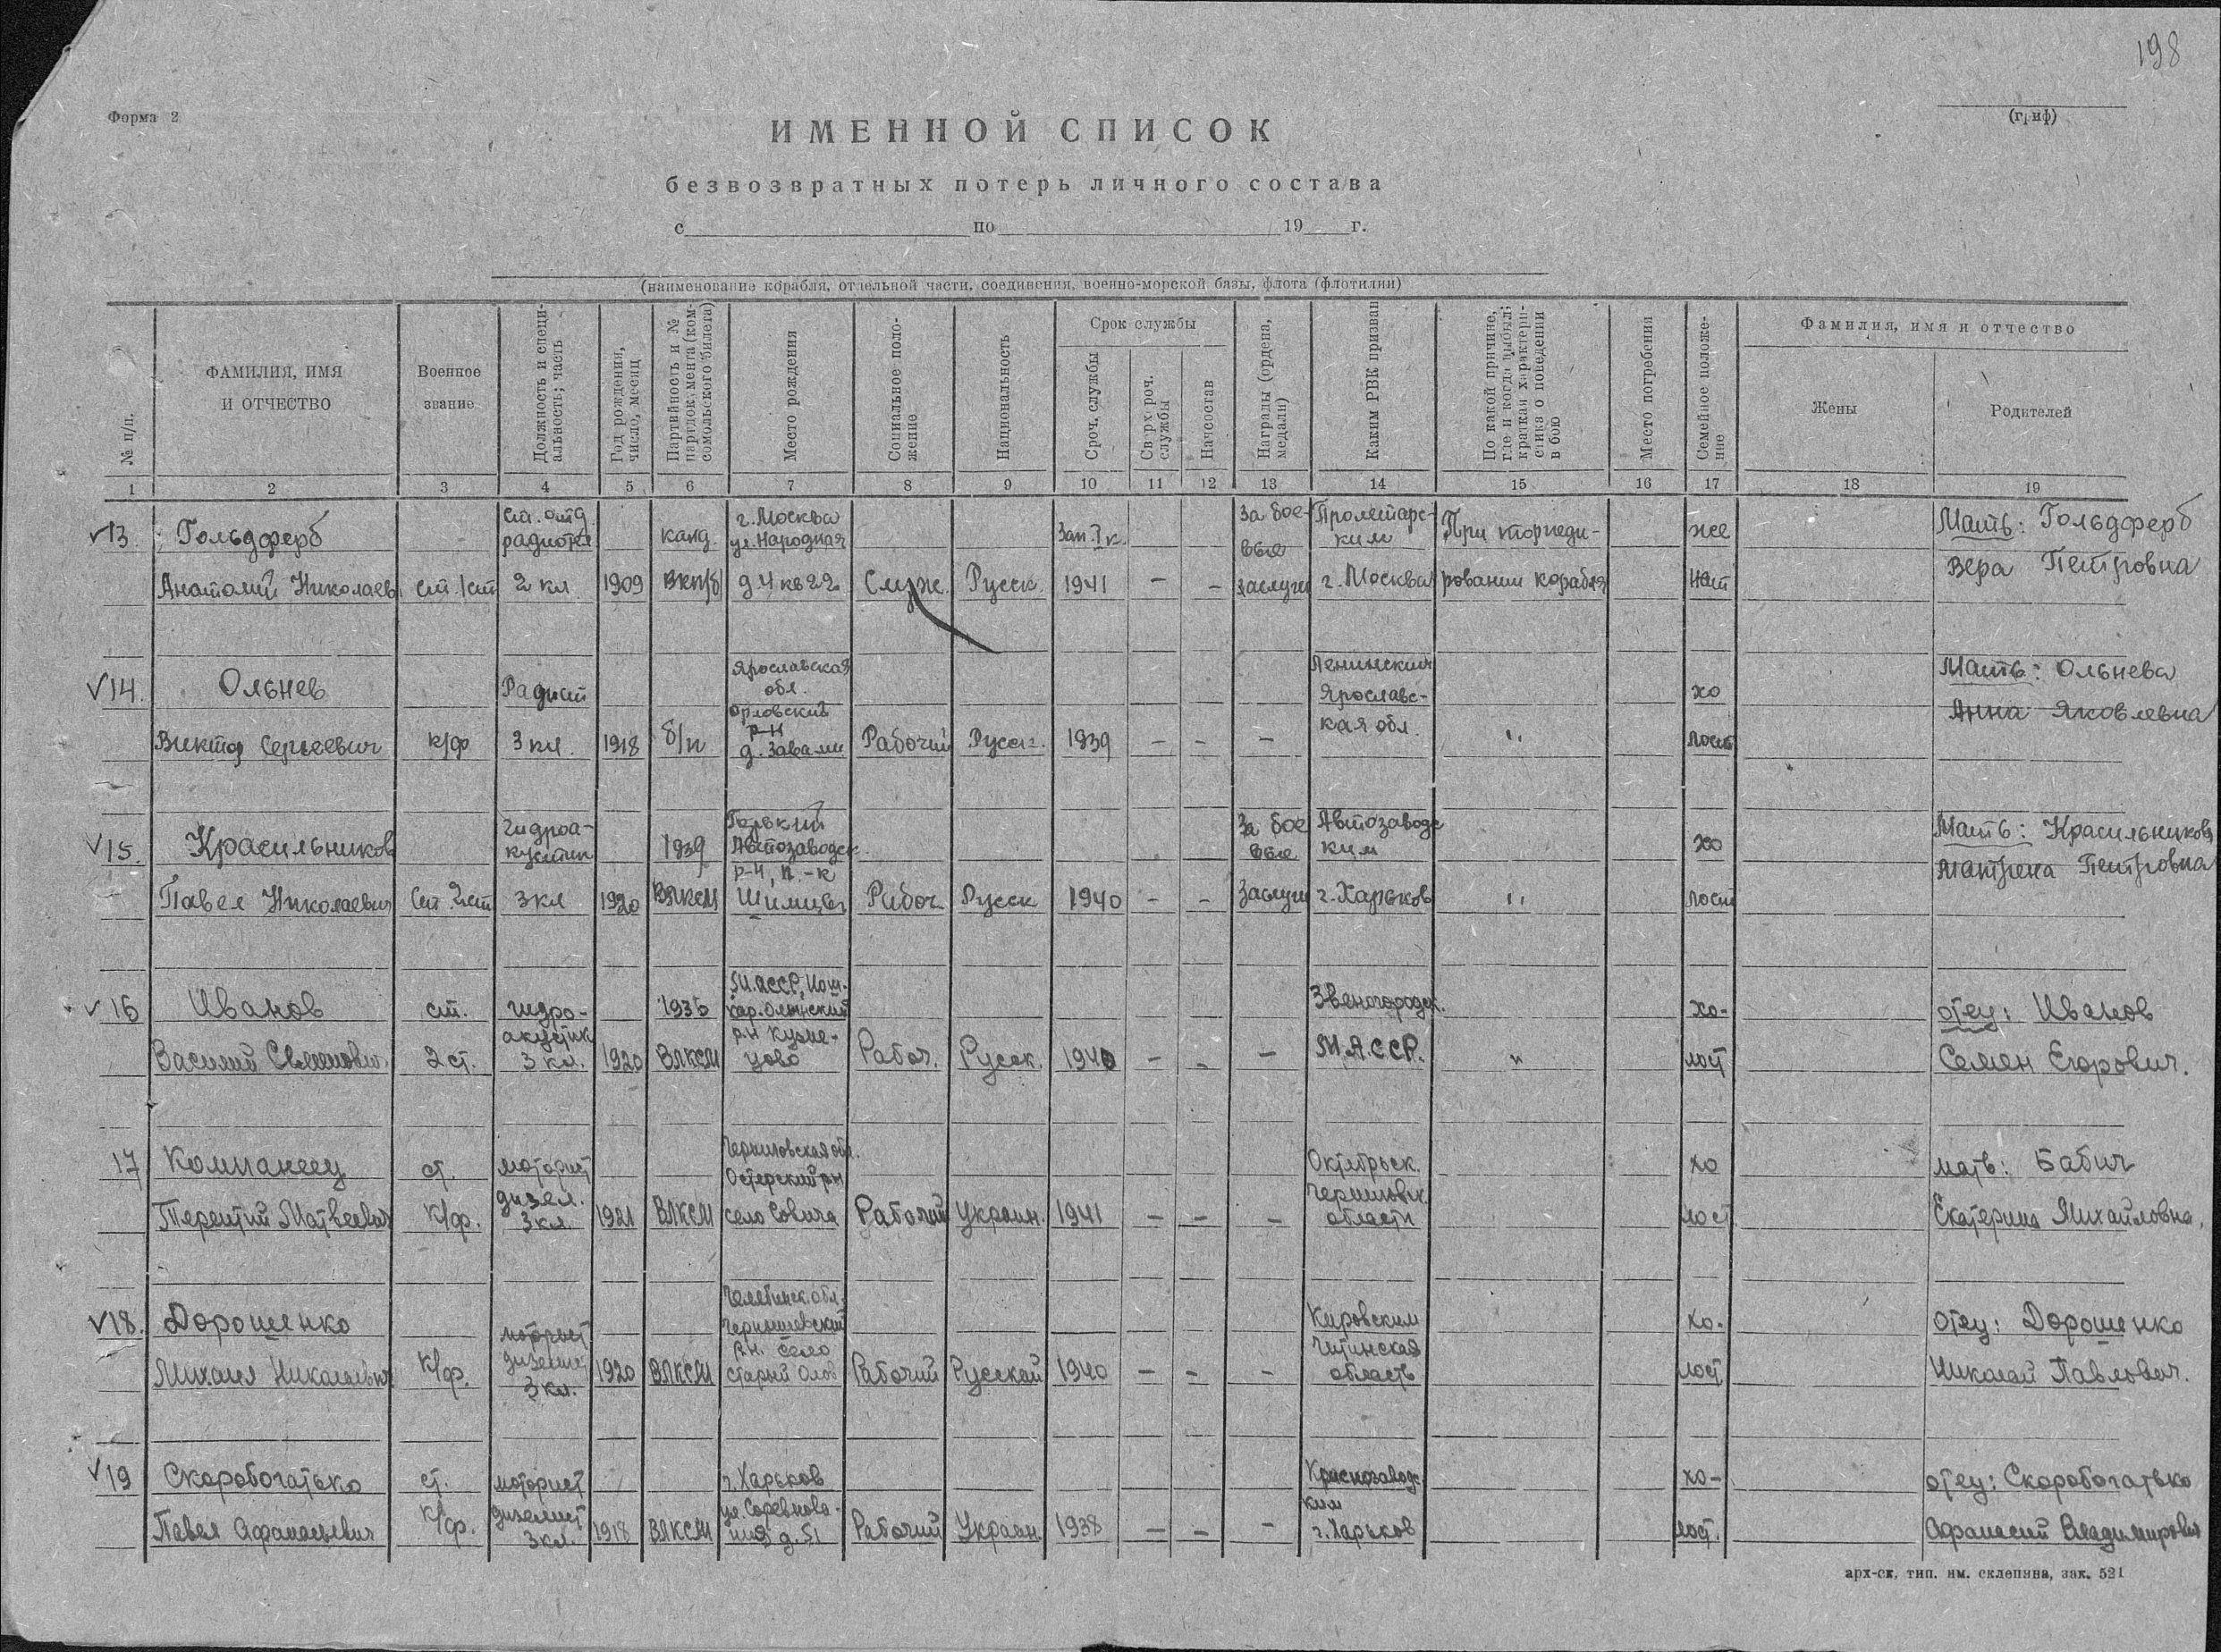 198
Форма 2
(гриф)
ИМЕННОЙ СПИСОК
безвозвратных потерь личного состава
с по 19 г.
(наименование корабля, отдельной части, соединения, военно-морской базы, флота (флотилии)
№ п/п.
ФАМИЛИЯ, ИМЯ
И ОТЧЕСТВО
Военное
звание
Должность и специ-
альность; часть
Год рождения,
число, месяц
Партийность и №
партдокумента (ком-
сомольского билета)
Место рождения
Социальное поло-
жение
Национальность
Срок службы
Сроч. службы
Сверхсроч.
службы
Начсостав
Награды (ордена,
медали)
Каким РВК призван
По какой причине,
где и когда выбыл;
краткая характери-
стика о поведении
в бою
Место погребения
Семейное положе-
ние
Фамилия, имя и отчество
Жены
Родителей
1 2 3 4 5 6 7 8 9 10 11 12 13 14 15 16 17 18 19
13. Гольдферб
Анатолий Николаев. ст. 1 ст
ст. отд.
радиотел
2 кл 1909
канд.
ВКП/б/
г. Москва
ул. Народная
д 4 кв 22
Служ. Русск.
Зап. I к.
1941 - -
За бое-
вые
заслуги
Пролетарс-
ким
г. Москва
При торпеди-
ровании корабля
же
нат
Мать: Гольдферб
Вера Петровна
14. Ольнев
Виктор Сергеевич к/ф
Радист
3 кл. 1918 б/п
Ярославская
обл.
Орловский
р-н
Рабочий Русск. 1939 - - -
Ленинским
Ярославс-
кая обл. "
хо
лост
Мать: Ольнева
Анна Яковлевна
15. Красильников
Павел Николаевич Ст. 2 ст
Гидроа-
кустик
3 кл 1920
1939
ВЛКСМ
Горький
Автозаводск.
р-н, п.-к
Рабоч Русск 1940 - -
За бое
вые
Заслуги
Автозаводс
ким
г. Харьков "
хо
лост
Мать: Красильникова
Матрена Петровна
16 Иванов
Василий Семенович
ст.
2 ст.
гидро-
акустик
3 кл. 1920
1936
ВЛКСМ
М.АССР, Йош-
кар-Олинский
р-н Кузне-
цово
Рабоч. Русск. 1940 - - -
Звенигородск.
М.А.ССР. "
хо-
лост
отец: Иванов
Семен Егорович.
17 Компанеец
Терентий Матвеевич
ст.
к/ф.
моторист
дизел.
3 кл. 1921 ВЛКСМ
Черниговская обл.
Остерский р-н
Рабочий Украин. 1941 - - -
Октябрьск.
Черниговск.
области
хо
лост.
мать: Бабич
Екатерина Михайловна.
18. Дорошенко
Михаил Николаевич к/ф.
моторист
дизелист
3 кл. 1920 ВЛКСМ
Чернышевский
р-н. село
Рабочий Русской 1940 - - -
Кировским
Читинская
область
хо.
лост.
Отец: Дорошенко
Николай Павлович.
19 Скоробогатько
Павел Афанасьевич
ст.
к/ф.
моторист
дизелист
3 кл. 1918 ВЛКСМ
г. Харьков
ул. Соревнова-
ния д. 51
Рабочий Украин. 1938 - - -
Краснозаводс-
ким
г. Харьков
хо-
лост.
отец: Скоробогатько
Афанасий Владимирович
арх-ск, тип. им. склепина, зак. 521